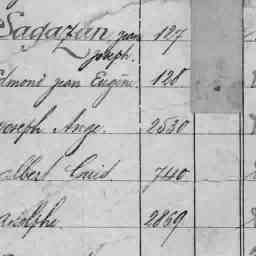 Sagazan jean 127
Joseph.
Edmond jean Eugène 128
Joseph Ange. 2530
Albert Louis 740
Adolphe. 2869